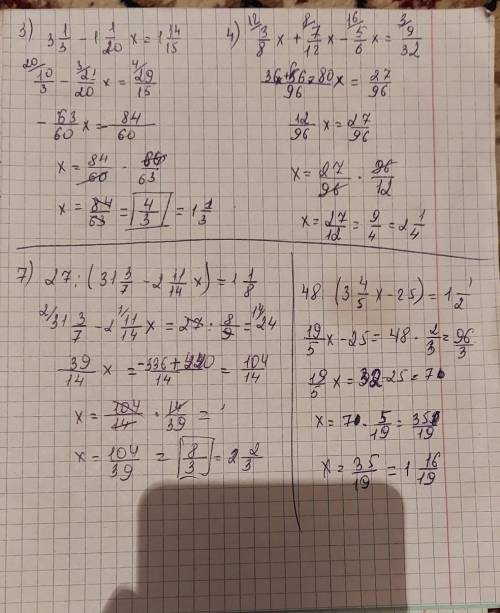 3) 3 1/3 - 1 1/20 x = 1 14/15
20/ 10/3 - 3/ 21/20 x = 4/ 29/15
- 63/60 x = - 84/60
x = 84/60 · 60/63
x = 84/63 = 4/3 = 1 1/3
4) 12/ 3/8 x + 8/ 7/12 x - 16/ 5/6 x = 3/ 9/32
36+56-80/96 x = 27/96
12/96 x = 27/96
x = 27/96 · 96/12
x = 27/12 = 9/4 = 2 1/4
7) 27 : (31 3/7 - 2 11/14 x) = 1 1/8
2/ 31 3/7 - 2 1/ 11/14 x = 27 · 8/9 = 14/ 24
39/14 x = -336+440/14 = 104/14
x = 104/14 · 14/39 =
x = 104/39 = 8/3 = 2 2/3
48 : (3 4/5 x - 25) = 1 1/2
19/5 x - 25 = 48 · 2/3 = 96/3
19/5 x = 32 - 25 = 7
x = 7 · 5/19 = 35/19
x = 35/19 = 1 16/19